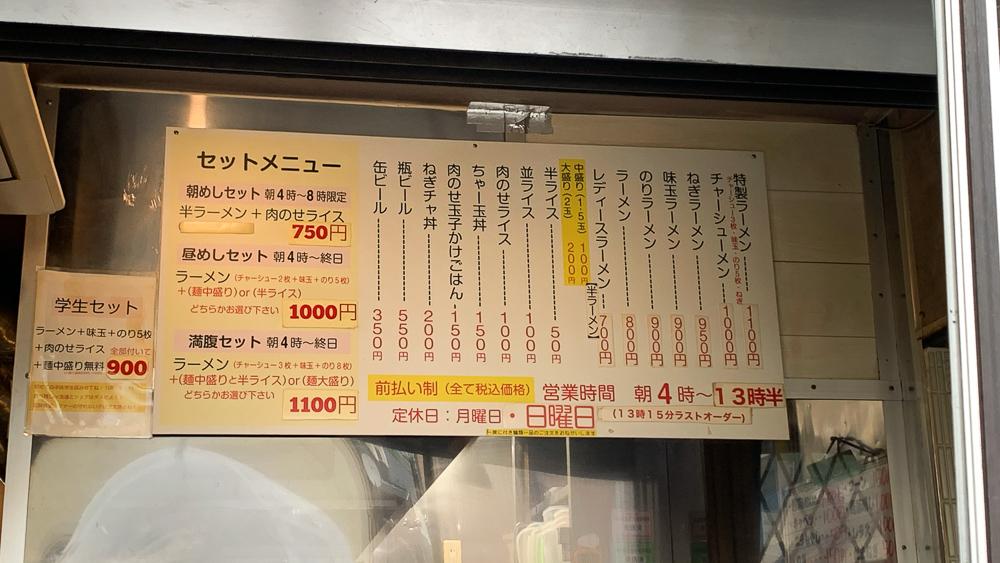 セットメニュー
朝めしセット 朝4時〜8時限定
半ラーメン+肉のせライス
750円
昼めしセット 朝4時〜終日
ラーメン(チャーシュー2枚+味玉+のり5枚)
+(麺中盛り)or(半ライス)
どちらかお選び下さい 1000円
満腹セット 朝4時〜終日
ラーメン(チャーシュー3枚+味玉+のり8枚)
+(麺中盛りと半ライス)or(麺大盛り)
どちらかお選び下さい
1100円
特製ラーメン 1100円
チャーシュー3枚・味玉・のり5枚・ねぎ
チャーシューメン 1000円
ねぎラーメン 950円
味玉ラーメン 900円
のりラーメン 900円
ラーメン 800円
レディースラーメン【半ラーメン】 700円
中盛り(1.5玉) 100円
大盛り(2玉) 200円
半ライス 50円
並ライス 100円
肉のせライス 100円
ちゃー玉丼 150円
肉のせ玉子かけごはん 150円
ねぎチャ丼 200円
瓶ビール 550円
缶ビール 350円
前払い制(全て税込価格) 営業時間 朝4時〜13時半
(13時15分ラストオーダー)
定休日:月曜日・日曜日
学生セット
ラーメン+味玉+のり5枚
+肉のせライス 全部付いて
+麺中盛り無料 900